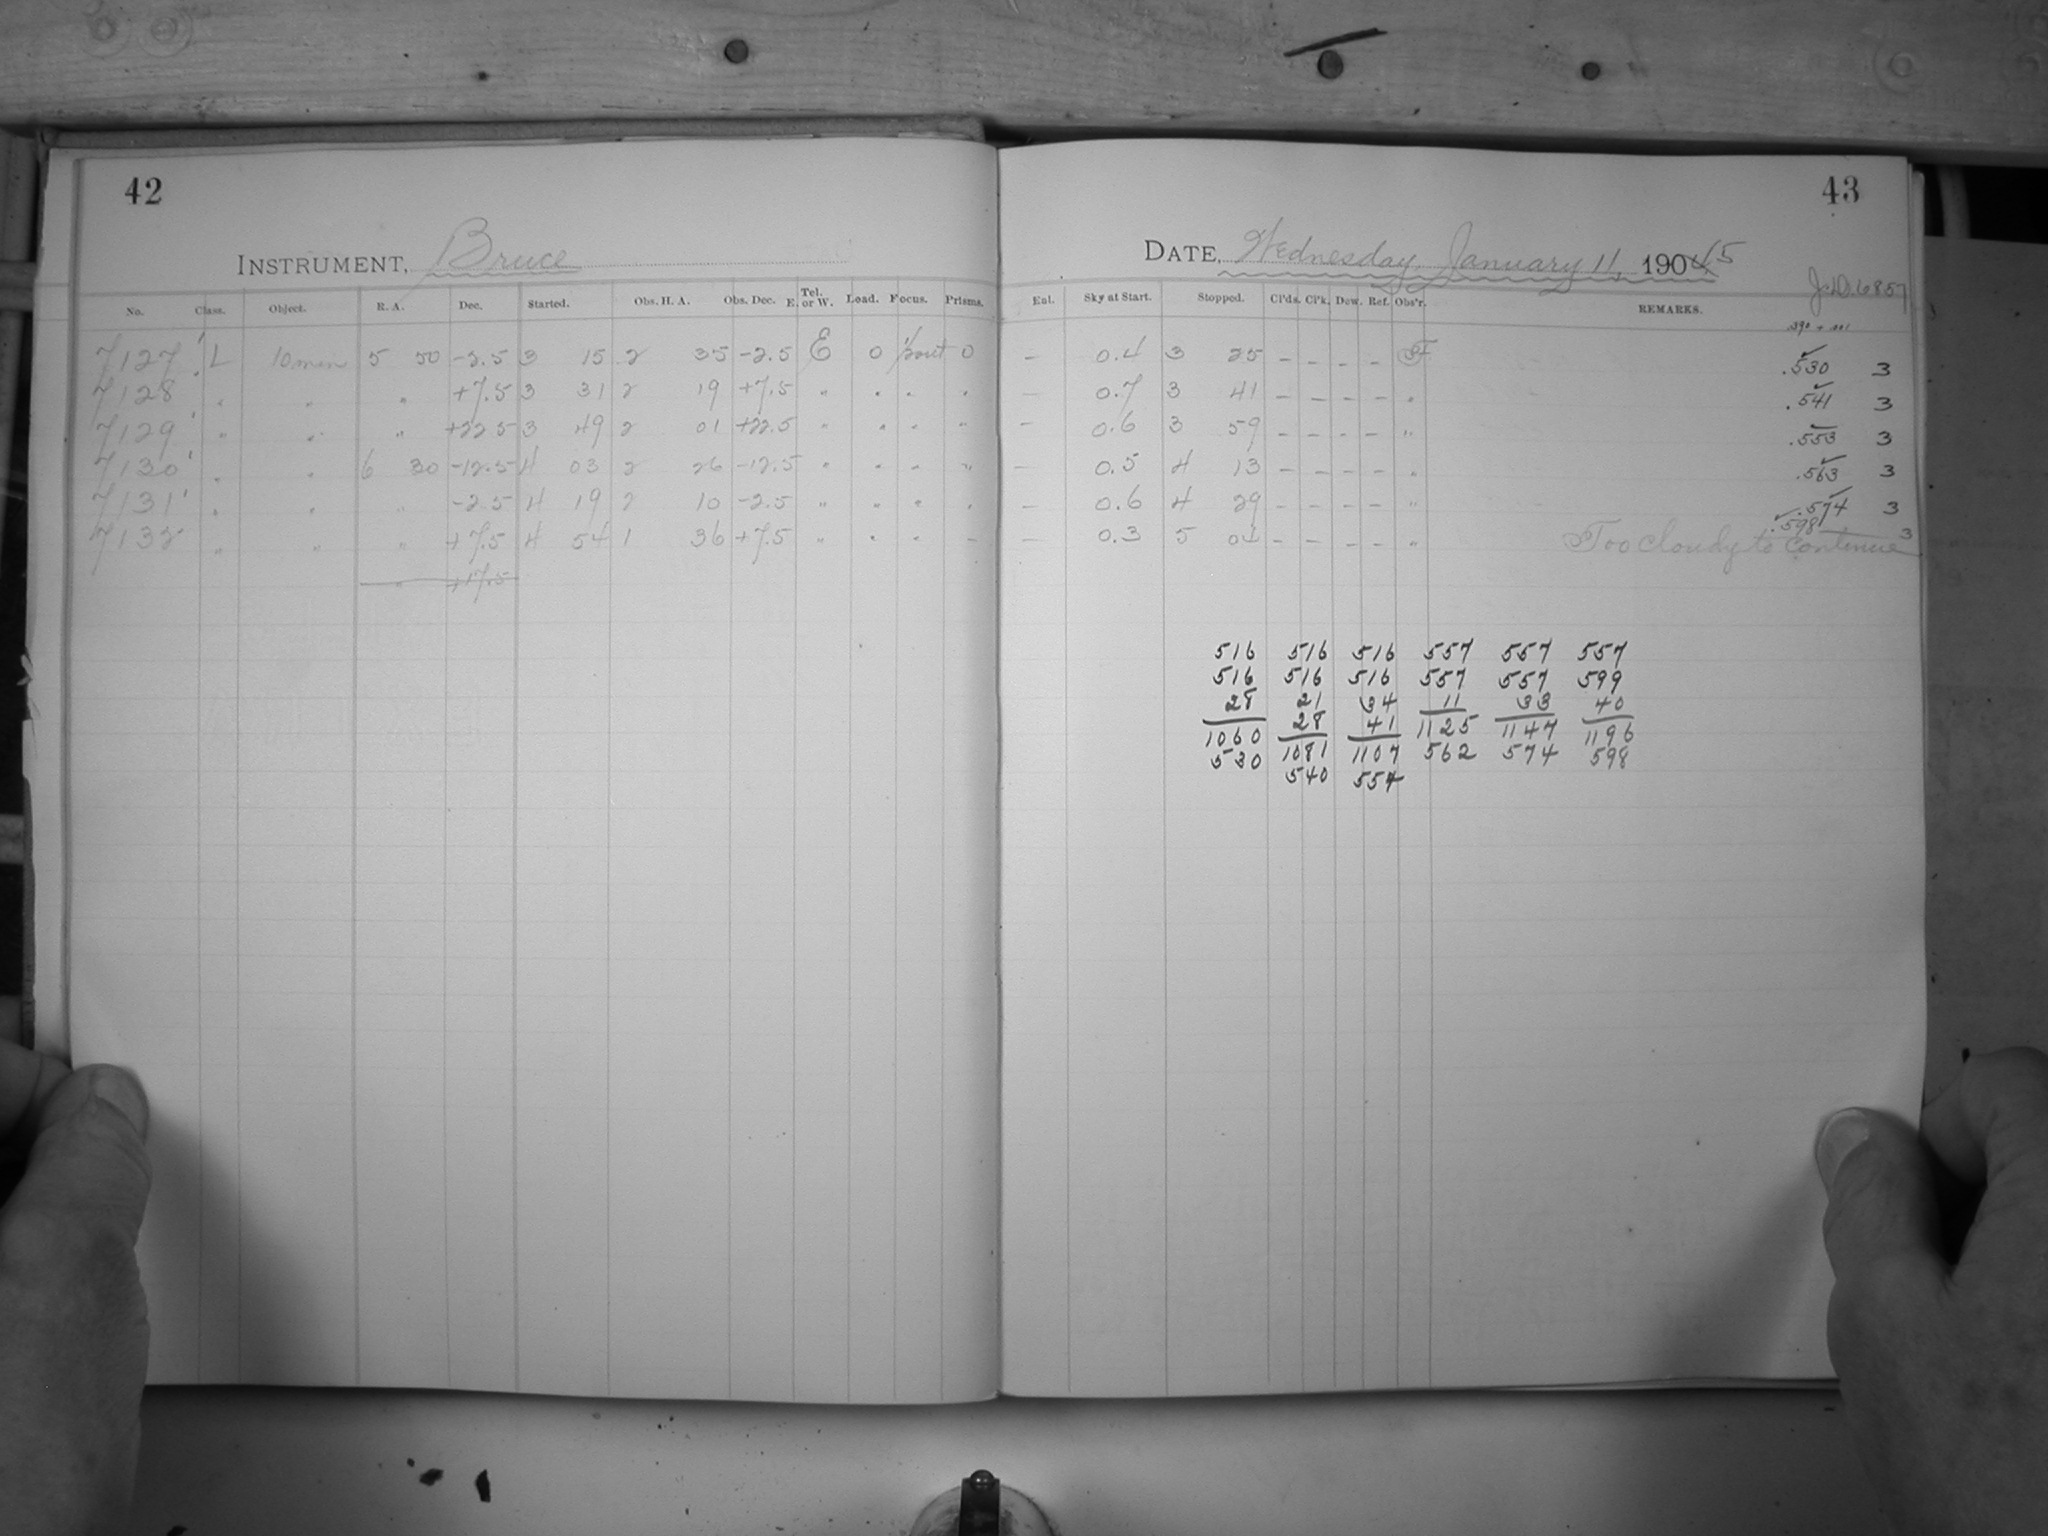 42
INSTRUMENT, Bruce
No. Class. Object. R. A. Dec. Started. Obs. H. A. Obs. Dec. Tel. E. or W. Load. Focus. Prisms.
7127 L 10 min 5 50 -2.5 3 15 2 35 -2.5 E 0 0
7128 " " " +7.5 3 31 2 19 +7.5 " " " "
7129 " " " +22.5 3 49 2 01 +22.5 " " " "
7130 " " 6 30 -12.5 4 03 2 26 -12.5 " " " "
7131 " " " -2.5 4 19 2 10 -2.5 " " " "
7132 " " " +7.5 4 54 1 36 +7.5 " " " "
" +17.5
43
DATE, Wednesday, January 11, 1905
J.D. 6857
Eni. Sky at Start. Stopped. Cl'ds. Cl'k. Dew. Ref. Obs'r. REMARKS.
- 0.4 3 25 - - - - F .530 3
- 0.7 3 41 - - - - " .541 3
- 0.6 3 59 - - - - " .553 3
- 0.5 4 13 - - - - " .563 3
- 0.6 4 29 - - - - " .574 3
- 0.3 5 04 - - - - " .598 3
Too cloudy to continue
516 516 516 557 557 557
516 516 516 557 557 599
28 21 34 11 33 40
1060 28 41 1125 1147 1196
530 1081 1107 562 574 598
540 554